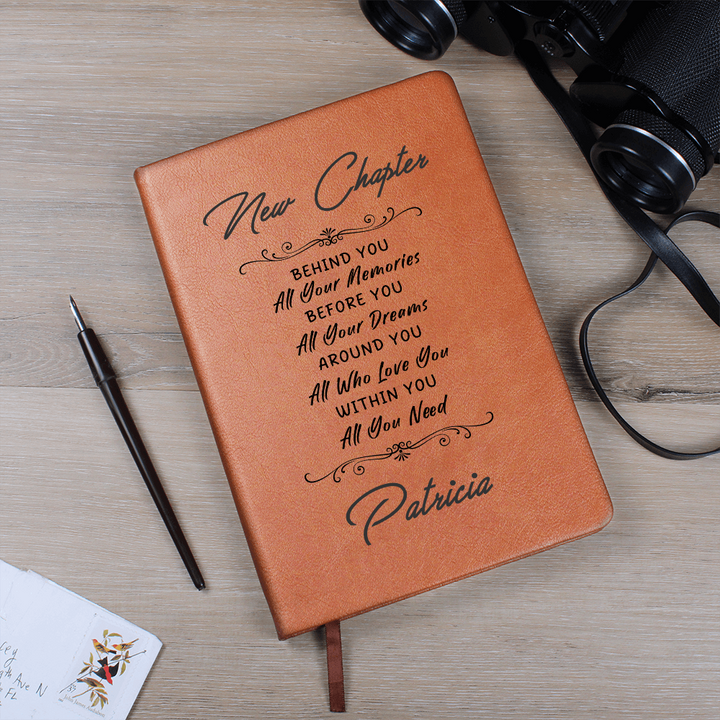 New Chapter
BEHIND YOU
All Your Memories
BEFORE YOU
All Your Dreams
AROUND YOU
All Who Love You
WITHIN YOU
All You Need
Patricia
Ave N
FL